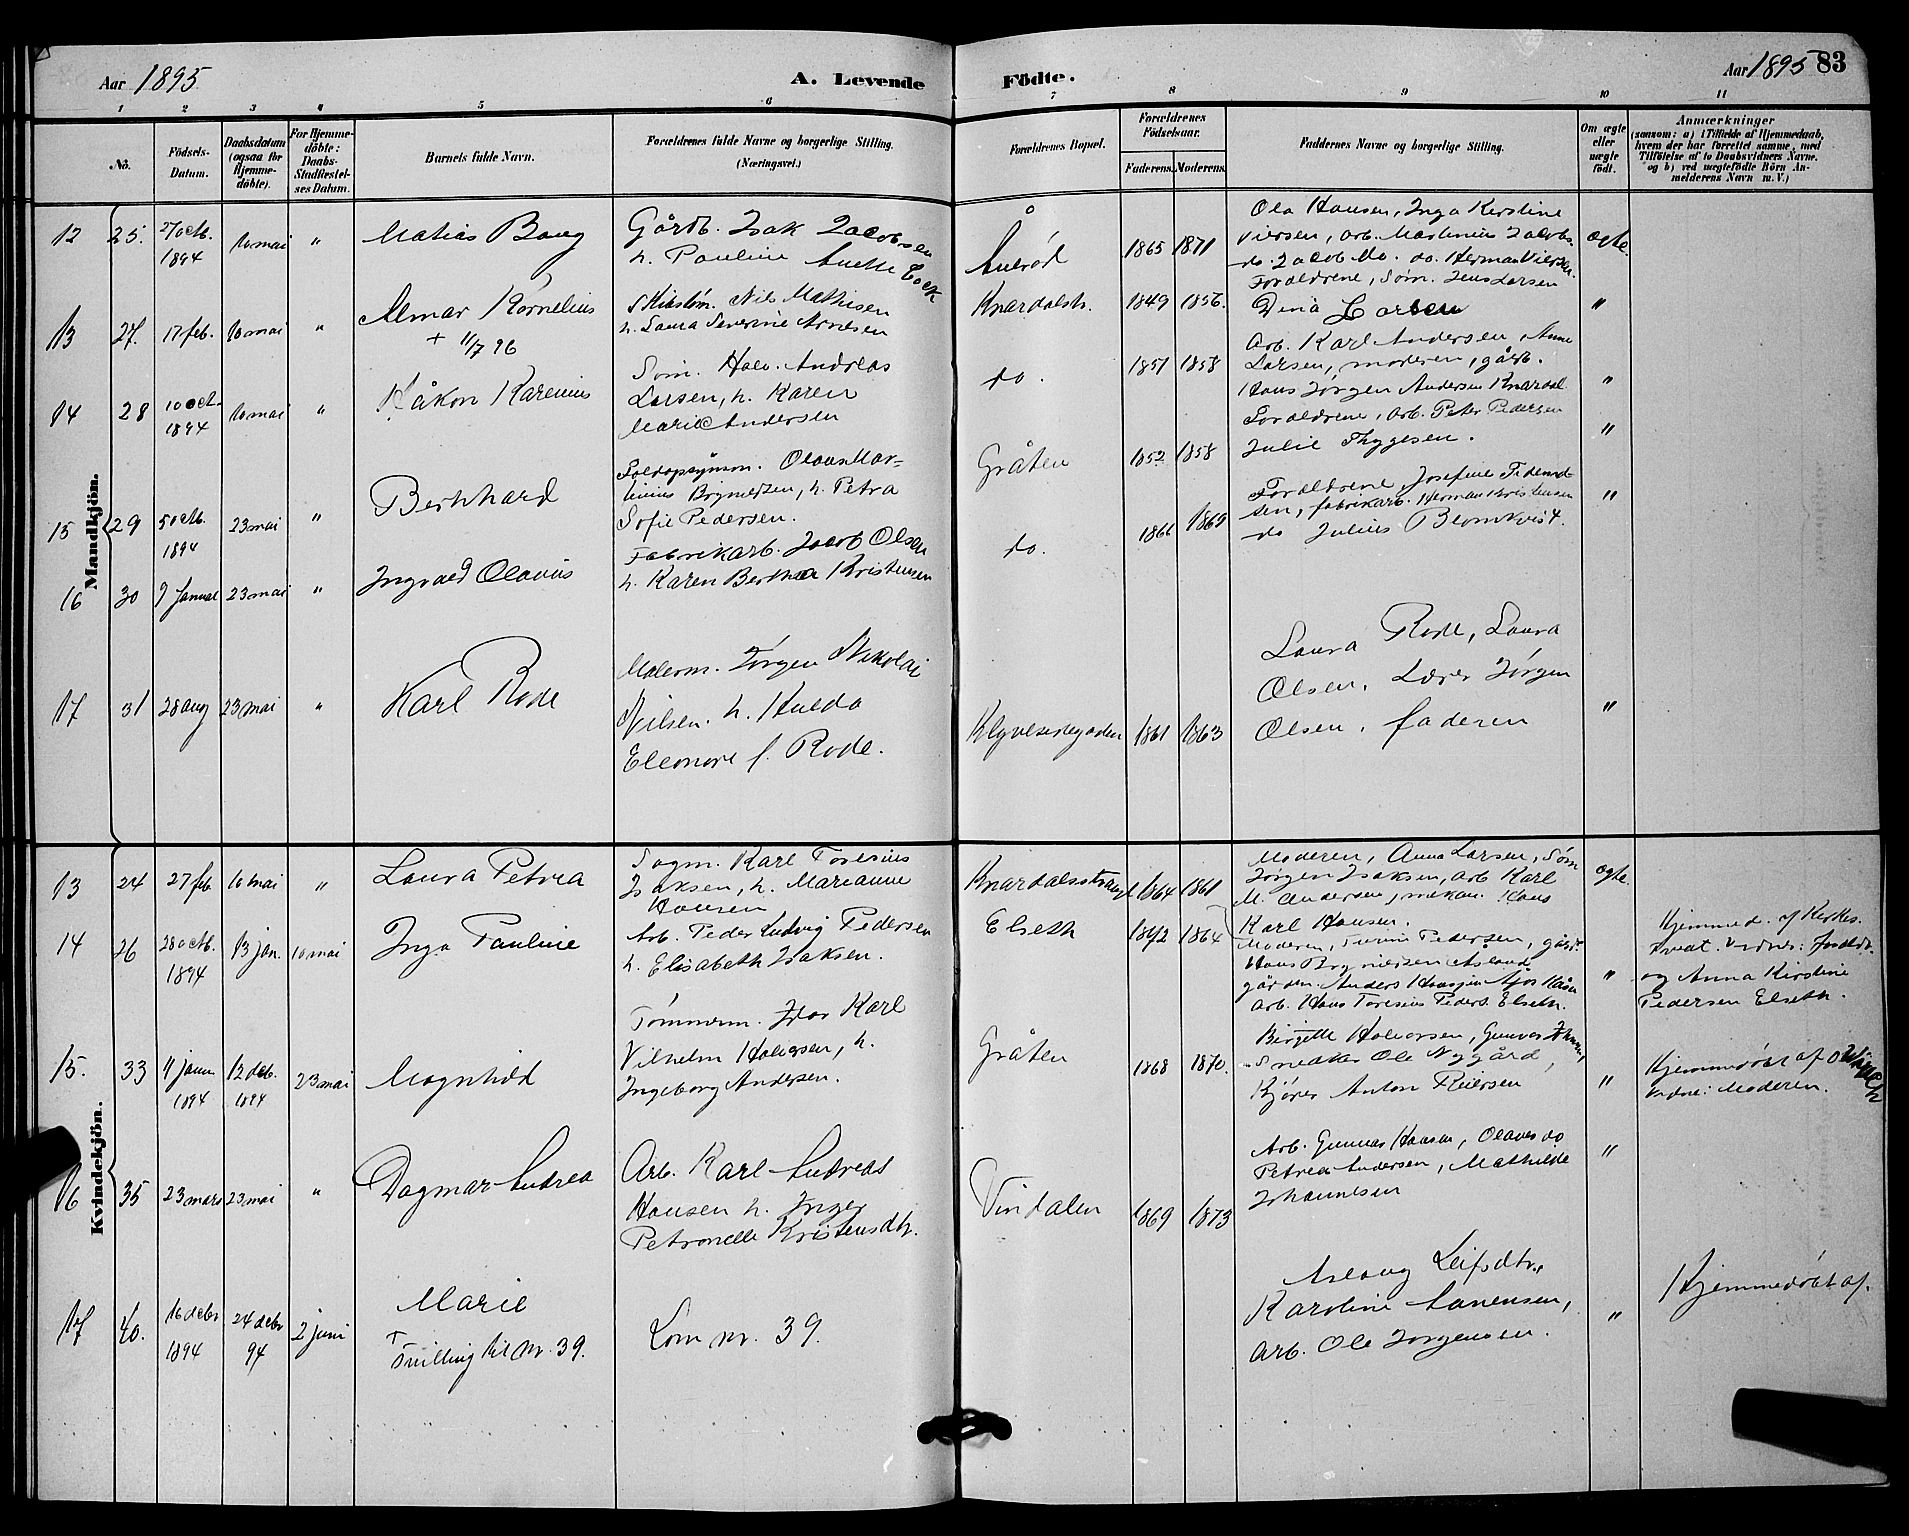 Aar 1895.
A. Levende
Födte.
Aar 1895
83
1 2 3 4 5 6 7 8 9 10 11
No.
Födsels-
Datum.
Daabsdatum
(ogsaa for
Hjemme-
döbte).
For Hjemme-
döbte:
Daabs-
Stadfæstel-
ses Datum.
Barnets fulde Navn.
Forældrenes fulde Navne og borgerlige Stilling.
(Næringsvei.)
Forældrenes Bopæl.
Forældrenes
Födselsaar.
Faderens. Moderens.
Faddernes Navne og borgerlige Stilling.
Om ægte
eller
uægte
født.
Anmærkninger
(saasom: a) i Tilfælde af Hjemmedaab,
hvem der har forrettet samme, med
Tilföielse af to Daabsvidners Navne,
og b) ved uægtefödte Börn An-
melderens Navn m. V.)
Mandkjön.
12 25. 27 oct. 1894 10 mai " Matias Baug
Gårdb. Isak Jacobsen
h. Pauline Anette
1865 1871
Ola Hansen, Inga Kerstine
arb. Martinius Jacobs.
do. Jacob do. do. Herman
ægte.
13 27. 17 feb. 10 mai " Almar Kornelius
+ 11/7 96
Nils Mathisen
h. Laura Severine Arnesen
Knardalstr. 1849 1856.
Forældrene, Søm. Jens Larsen
Dina Larsen
"
14 28 10 oct. 1894 10 mai " Håkon Karenius
Søm. Halv. Andreas
Larsen, h. Karen
Marie Andersen
do. 1857 1858
Arb. Karl Andersen, Anne
Larsen, moderen, gårb.
Hans Jørgen Andersen Knardal
"
15 29 5 oct. 1894 23 mai " Bernhard
Olaus Mar-
tinius Brynielsen, h. Petra
Sofie Pedersen.
Gråten 1852 1858
Forældrene, arb. Peter Pedersen
Julie Thygesen.
"
16 30 9 januar 23 mai " Ingvald Olavius
Fabrikarb. Jacob Olsen
h. Karen Bertha Kristensen
do. 1866 1865
Forældrene, Josefine
sen, fabrikarb. Herman Kristensen
do Julius Blomkvist.
"
17 31 28 aug 23 mai " Karl Rode
Malerm. Jørgen Nikolai
Nilsen. h. Hulda
Eleonore f. Rode.
Klyvesenegaden 1861 1863
Laura Rode, Laura
Olsen, Lærer Jörgen
Olsen, faderen
"
Kvindekjön.
13 24 27 feb 10 mai " Laura Petrea
Sagm. Karl Toresius
Isaksen, h. Marianne
Hansen
1864 1861
Moderen, Anna Larsen, Søm
Jørgen Isaksen, arb Karl
M. Andersen, mekan. Hans
Karl Hansen.
ægte.
14 26 28 oct. 1894 13 jan. 10 mai Inga Pauline
Arb. Peder Ludvig Pedersen
h. Elisabeth Isaksen.
Elseth 1864
Moderen, Pedersen,
Hans Brynielsen
Arb. Hans Toresius Peders. Elseth.
"
Hjemmed. af Kirkes.
og Anna Kirstine
Pedersen Elseth.
15. 33 1894 12 deb. 1894 23 mai Magnhild
Tømmerm. Karl
Vilhelm Halvorsen, h.
Ingeborg Andersen.
Gråten 1868 1870.
Birgitte Halvorsen, Gunvor
Snedker Ole Nygård,
Kjører Anton Reiersen
"
Hjemmedøbt af
Vidne: Moderen.
16 35 23 mars 23 mai " Dagmar Andrea
Arb. Karl Andreas
Hansen h. Inger
Petronelle Kristensdtr.
Vindalen 1869 1873
Arb. Gunnar Hansen, Olaves do
Petrea Andersen, Mathilde
Johannesen
"
17 40. 16 debr 1894 24 debr 94 2 juni Marie
+
Tvilling til nr. 39.
Som nr. 39.
Aslaug Leifsdtr.,
Karoline Aanensen,
Arb. Ole Jørgensen.
"
Hjemmedøbt af.